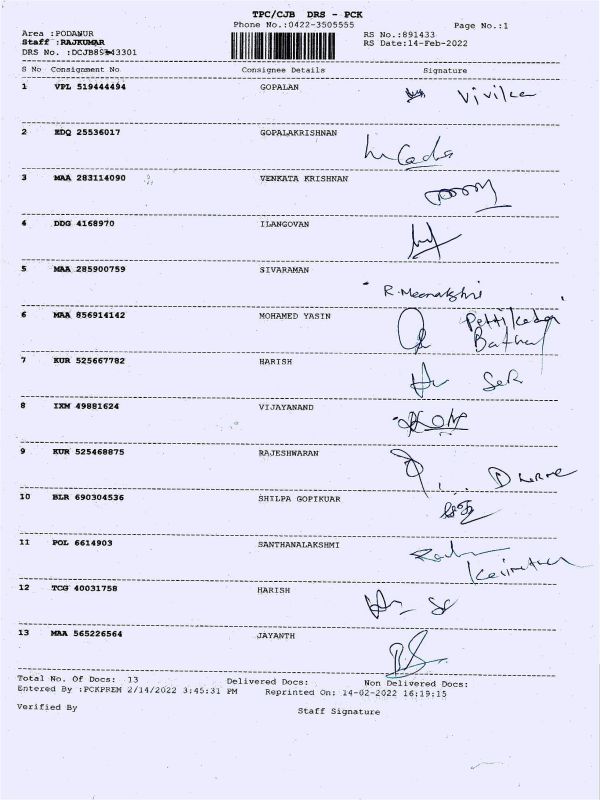 TPC/CJB DRS - PCK
Phone No.:0422-3505555 Page No.:1
Area :PODANUR RS No.:891433
Staff :RAJKUMAR RS Date:14-Feb-2022
DRS No. :DCJB89143301
S No Consignment No Consignee Details Signature
1 VPL 519444494 GOPALAN
2 EDQ 25536017 GOPALAKRISHNAN
3 MAA 283114090 VENKATA KRISHNAN
4 DDG 4168970 ILANGOVAN
5 MAA 285900759 SIVARAMAN R. Meenakshi
6 MAA 856914142 MOHAMED YASIN
7 KUR 525667782 HARISH
8 IXM 49881624 VIJAYANAND
9 KUR 525468875 RAJESHWARAN
10 BLR 690304536 SHILPA GOPIKUAR
11 POL 6614903 SANTHANALAKSHMI
12 TCG 40031758 HARISH
13 MAA 565226564 JAYANTH
Total No. Of Docs: 13 Delivered Docs: Non Delivered Docs:
Entered By :PCKPREM 2/14/2022 3:45:31 PM Reprinted On: 14-02-2022 16:19:15
Verified By Staff Signature